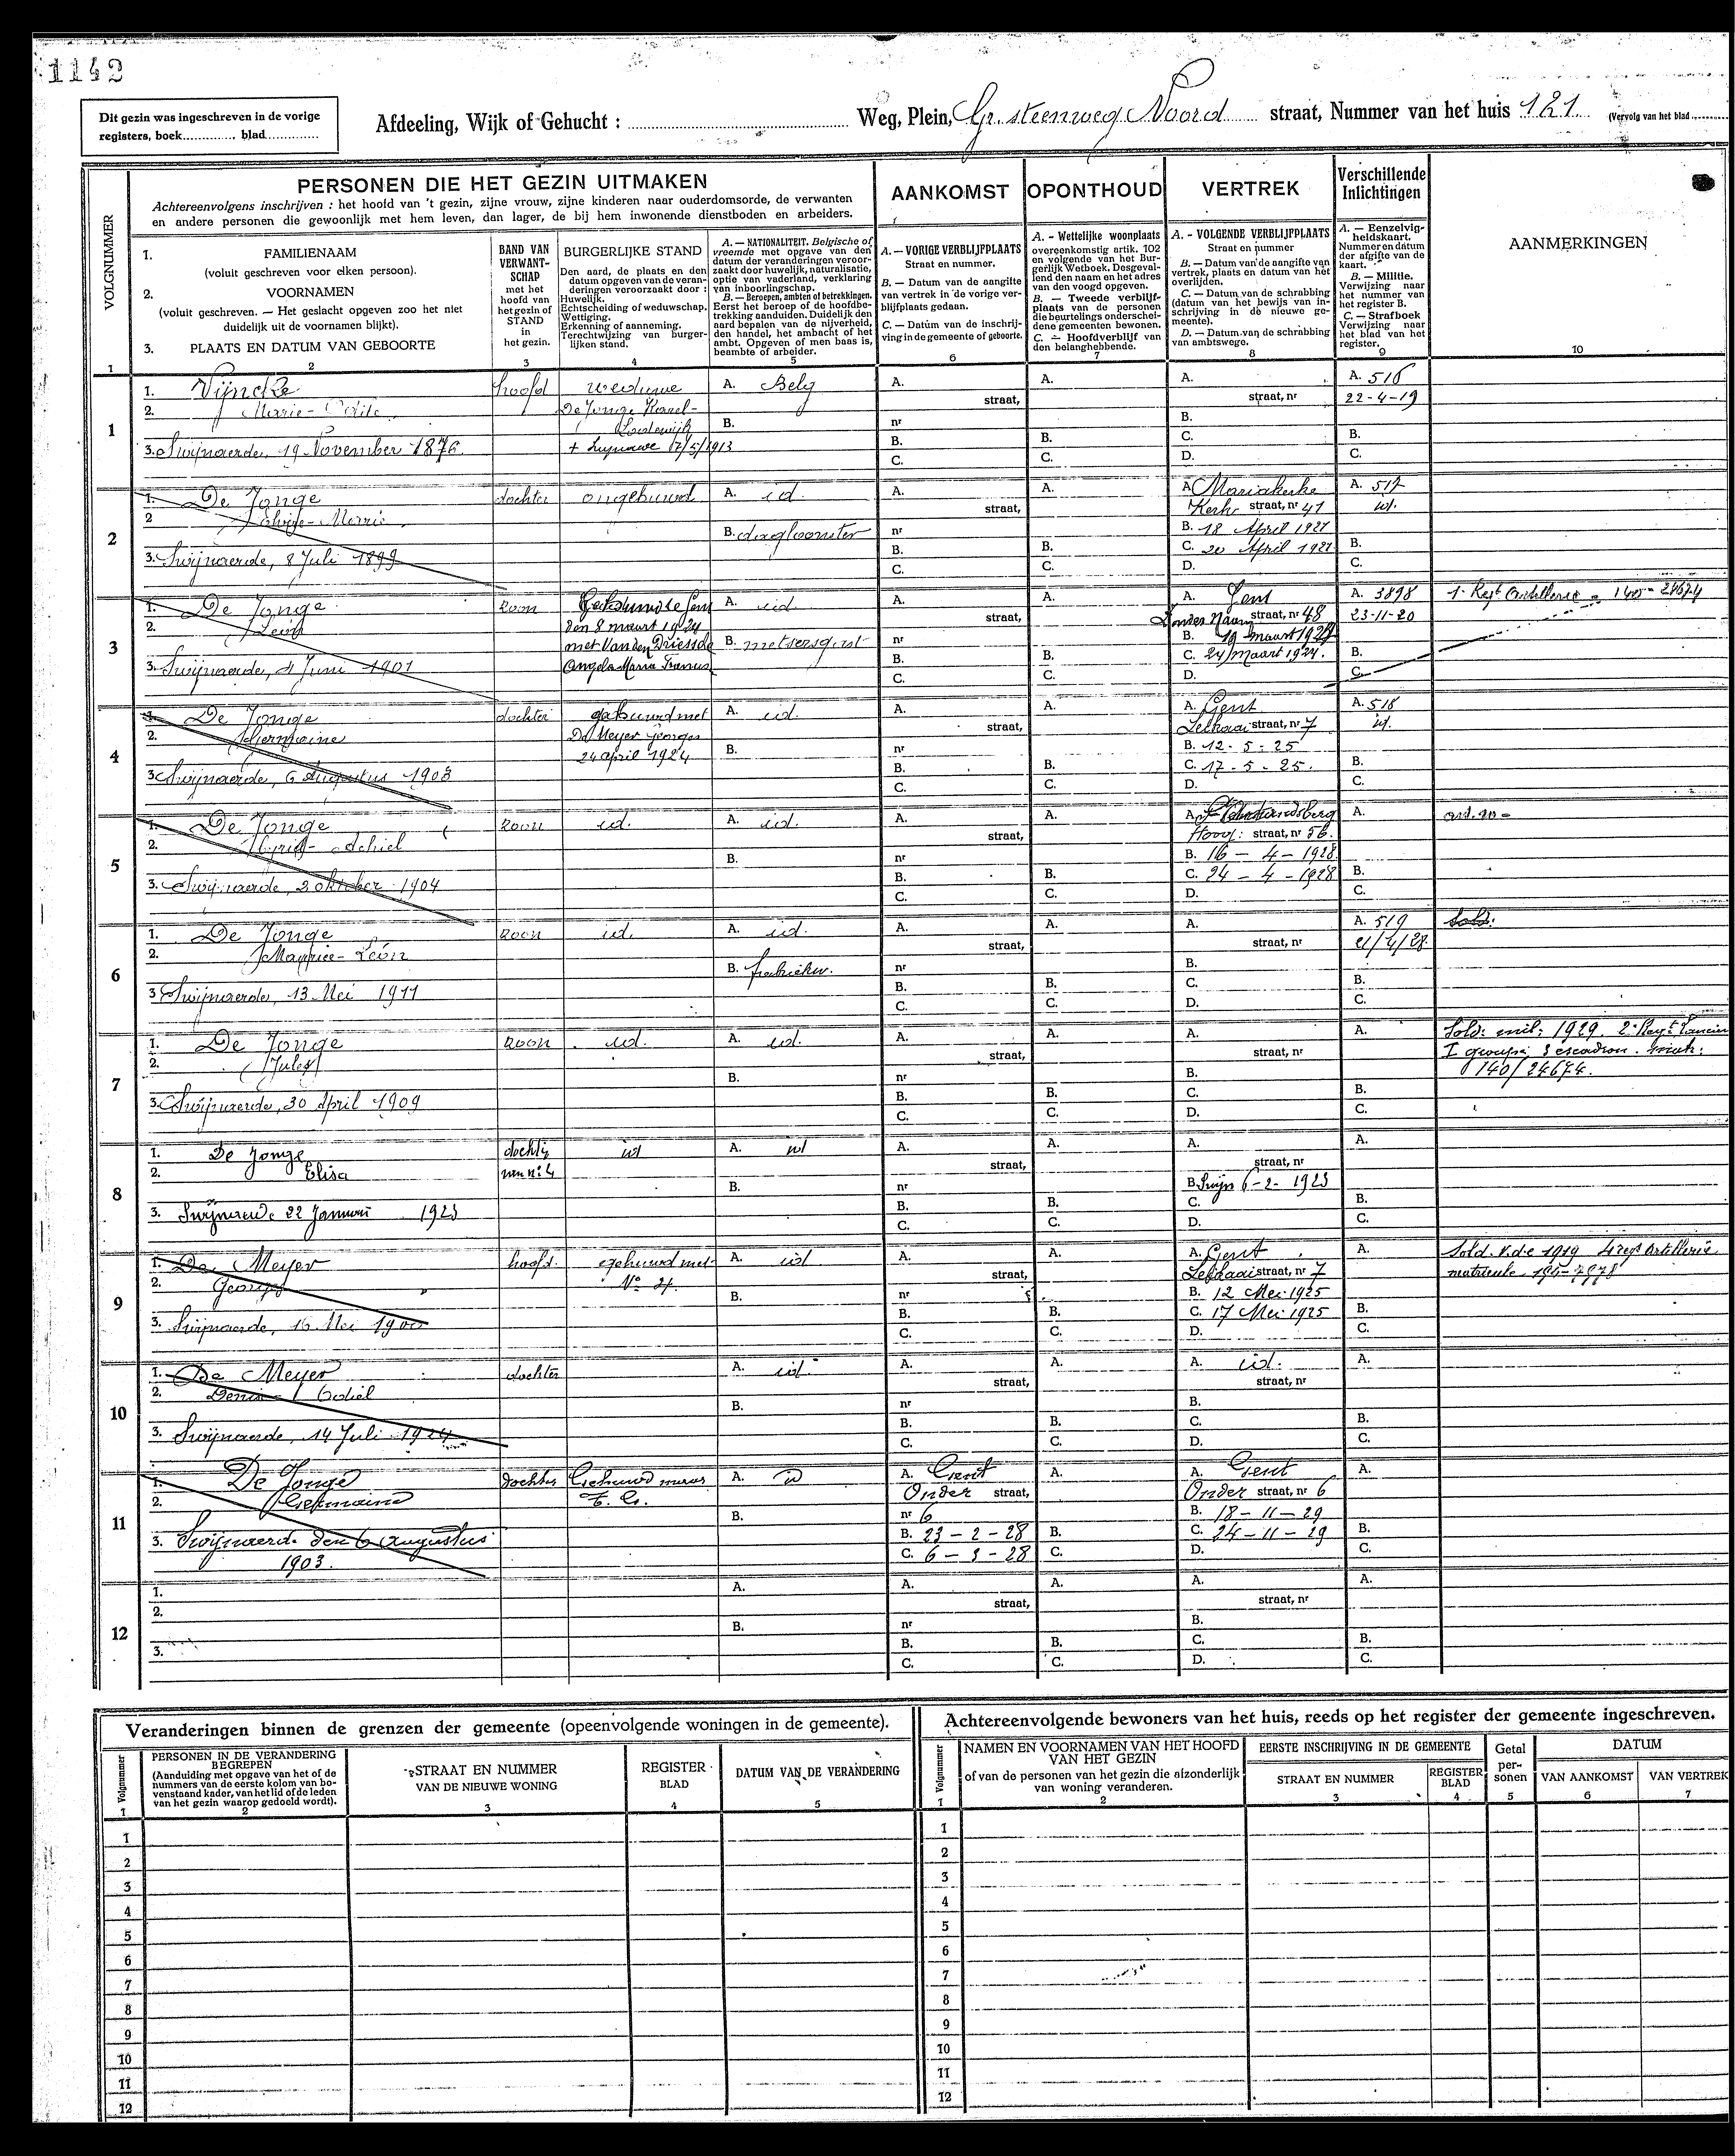 1142
Dit gezin was ingeschreven in de vorige
registers, boek............, blad............
Afdeeling, Wijk of Gehucht : ............ Weg, Plein, Gr. steenweg Noord straat, Nummer van het huis 121. (Vervolg van het blad ........
VOLGNUMMER
PERSONEN DIE HET GEZIN UITMAKEN
Achtereenvolgens inschrijven : het hoofd van 't gezin, zijne vrouw, zijne kinderen naar ouderdomsorde, de verwanten
en andere personen die gewoonlijk met hem leven, dan lager, de bij hem inwonende dienstboden en arbeiders.
1. FAMILIENAAM
(voluit geschreven voor elken persoon).
2. VOORNAMEN
(voluit geschreven. — Het geslacht opgeven zoo het niet
duidelijk uit de voornamen blijkt).
3. PLAATS EN DATUM VAN GEBOORTE
BAND VAN
VERWANT-
SCHAP
met het
hoofd van
het gezin of
STAND
in
het gezin.
BURGERLIJKE STAND
Den aard, de plaats en den
datum opgeven van de veran-
deringen veroorzaakt door :
Huwelijk.
Echtscheiding of weduwschap.
Wettiging.
Erkenning of aanneming.
Terechtwijzing van burger-
lijken stand.
A. — NATIONALITEIT. Belgische of
vreemde met opgave van den
datum der veranderingen veroor-
zaakt door huwelijk, naturalisatie,
optie van vaderland, verklaring
van inboorlingschap.
B. — Beroepen, ambten of betrekkingen.
Eerst het beroep of de hoofdbe-
trekking aanduiden. Duidelijk den
aard bepalen van de nijverheid,
den handel, het ambacht of het
ambt. Opgeven of men baas is,
beambte of arbeider.
AANKOMST
A. — VORIGE VERBLIJFPLAATS
Straat en nummer.
B. — Datum van de aangifte
van vertrek in de vorige ver-
blijfplaats gedaan.
C. — Datum van de inschrij-
ving in de gemeente of geboorte.
OPONTHOUD
A. - Wettelijke woonplaats
overeenkomstig artik. 102
en volgende van het Bur-
gerlijk Wetboek. Desgeval-
lend den naam en het adres
van den voogd opgeven.
B. — Tweede verblijf-
plaats van de personen
die beurtelings onderschei-
dene gemeenten bewonen.
C. — Hoofdverblijf van
den belanghebbende.
VERTREK
A. - VOLGENDE VERBLIJFPLAATS
Straat en nummer
B. — Datum van de aangifte van
vertrek, plaats en datum van het
overlijden.
C. — Datum van de schrabbing
(datum van het bewijs van in-
schrijving in de nieuwe ge-
meente).
D. — Datum van de schrabbing
van ambtswege.
Verschillende
Inlichtingen
A. — Eenzelvig-
heidskaart.
Nummer en datum
der afgifte van de
kaart.
B. — Militie.
Verwijzing naar
het nummer van
het register B.
C. — Strafboek
Verwijzing naar
het blad van het
register.
AANMERKINGEN
1 2 3 4 5 6 7 8 9 10
1
1. Vijncke hoofd weduwe A. Belg A. A. A. A. 516
2. Marie- De Jonge Karel- straat, straat, nr 22-4-19
Lodewijk B. nr B.
3. Swijnaerde, 19 November 1876. + 17/5/1913 B. B. C. B.
C. C. D. C.
2
1. De Jonge dochter ongehuwd A. id. A. A. A. Mariakerke A. 517
2. Marie straat, Kerk straat, nr 41 id.
B. dagloonster nr B. 18 April 1921
3. Swijnaerde, 8 Juli 1899 B. B. C. 20 April 1921 B.
C. C. D. C.
3
1. De Jonge zoon Gehuwd te Gent A. id A. A. A. Gent A. 3898 1. Regt Artillerie = 140 - 24674
2. Léon den 8 maart 1924 straat, straat, nr 48 23-11-20
met Van den Driessche B. metsersgast nr B. 19 maart 1924
3. Swijnaerde, 4 Juni 1901 Angela Maria B. B. C. 24 Maart 1924. B.
C. C. D. C.
4
1. De Jonge dochter gehuwd met A. id. A. A. A. Gent A. 518
2. Germaine De Meyer Georges straat, Leikaai straat, nr 7 id.
24 april 1924 B. nr B. 12-5-25
3. Swijnaerde, 6 Augustus 1903 B. B. C. 17-5-25. B.
C. C. D. C.
5
1. De Jonge zoon id. A. id. A. A. A. St Amandsberg A.
2. Achiel straat, Hoog: straat, nr 56.
B. nr B. 16 - 4 - 1928
3. Swijnaerde, 2 oktober 1904 B. B. C. 24 - 4 - 1928 B.
C. C. D. C.
6
1. De Jonge zoon id. A. id. A. A. A. A. 519 Sold:
2. Maurice- Léon straat, straat, nr 21/4/28.
B. fabriekw. nr B.
3. Swijnaerde, 13 Mei 1911 B. B. C. B.
C. C. D. C.
7
1. De Jonge zoon id. A. id. A. A. A. A. Sold: mil: 1929. 2e Regt Lancier
2. Jules straat, straat, nr I groupe, 3 escadron.
B. nr B. 140/24674.
3. Swijnaerde, 30 April 1909 B. B. C. B.
C. C. D. C.
8
1. De Jonge dochtr id A. id A. A. A. A.
2. Elisa van n: 4 straat, straat, nr
B. nr B. Swijn 6-2-1923
3. Swijnaerde 22 Januari 1923 B. B. C. B.
C. C. D. C.
9
1. De Meyer hoofd. gehuwd met A. id A. A. A. Gent A. Sold. v.d.e 1919 4 regt Artillerie
2. Georges No 4. straat, Leikaai straat, nr 7 matricule 194-7978
B. nr B. 12 Mei 1925
3. Swijnaerde, 16 Mei 1900 B. B. C. 17 Mei 1925 B.
C. C. D. C.
10
1. De Meyer dochter A. id. A. A. A. id. A.
2. straat, straat, nr
B. nr B.
3. Swijnaerde, 14 Juli 1924 B. B. C. B.
C. C. D. C.
11
1. De Jonge dochter Gehuwd A. id A. Gent A. A. Gent A.
2. Germaine Onder straat, Onder straat, nr 6
B. nr 6 B. 18 - 11 - 29
3. Swijnaerde den 6 augustus B. 23 - 2 - 28 B. C. 24 - 11 - 29 B.
1903. C. 6 - 3 - 28 C. D. C.
12
1. A. A. A. A. A.
2. straat, straat, nr
B. nr B.
3. B. B. C. B.
C. C. D. C.
Veranderingen binnen de grenzen der gemeente (opeenvolgende woningen in de gemeente).
Volgnummer
PERSONEN IN DE VERANDERING
BEGREPEN
(Aanduiding met opgave van het of de
nummers van de eerste kolom van bo-
venstaand kader, van het lid of de leden
van het gezin waarop gedoeld wordt).
STRAAT EN NUMMER
VAN DE NIEUWE WONING
REGISTER
BLAD
DATUM VAN DE VERANDERING
1 2 3 4 5
1
2
3
4
5
6
7
8
9
10
11
12
Achtereenvolgende bewoners van het huis, reeds op het register der gemeente ingeschreven.
Volgnummer
NAMEN EN VOORNAMEN VAN HET HOOFD
VAN HET GEZIN
of van de personen van het gezin die afzonderlijk
van woning veranderen.
EERSTE INSCHRIJVING IN DE GEMEENTE
STRAAT EN NUMMER
REGISTER
BLAD
Getal
per-
sonen
DATUM
VAN AANKOMST
VAN VERTREK
1 2 3 4 5 6 7
1
2
3
4
5
6
7
8
9
10
11
12